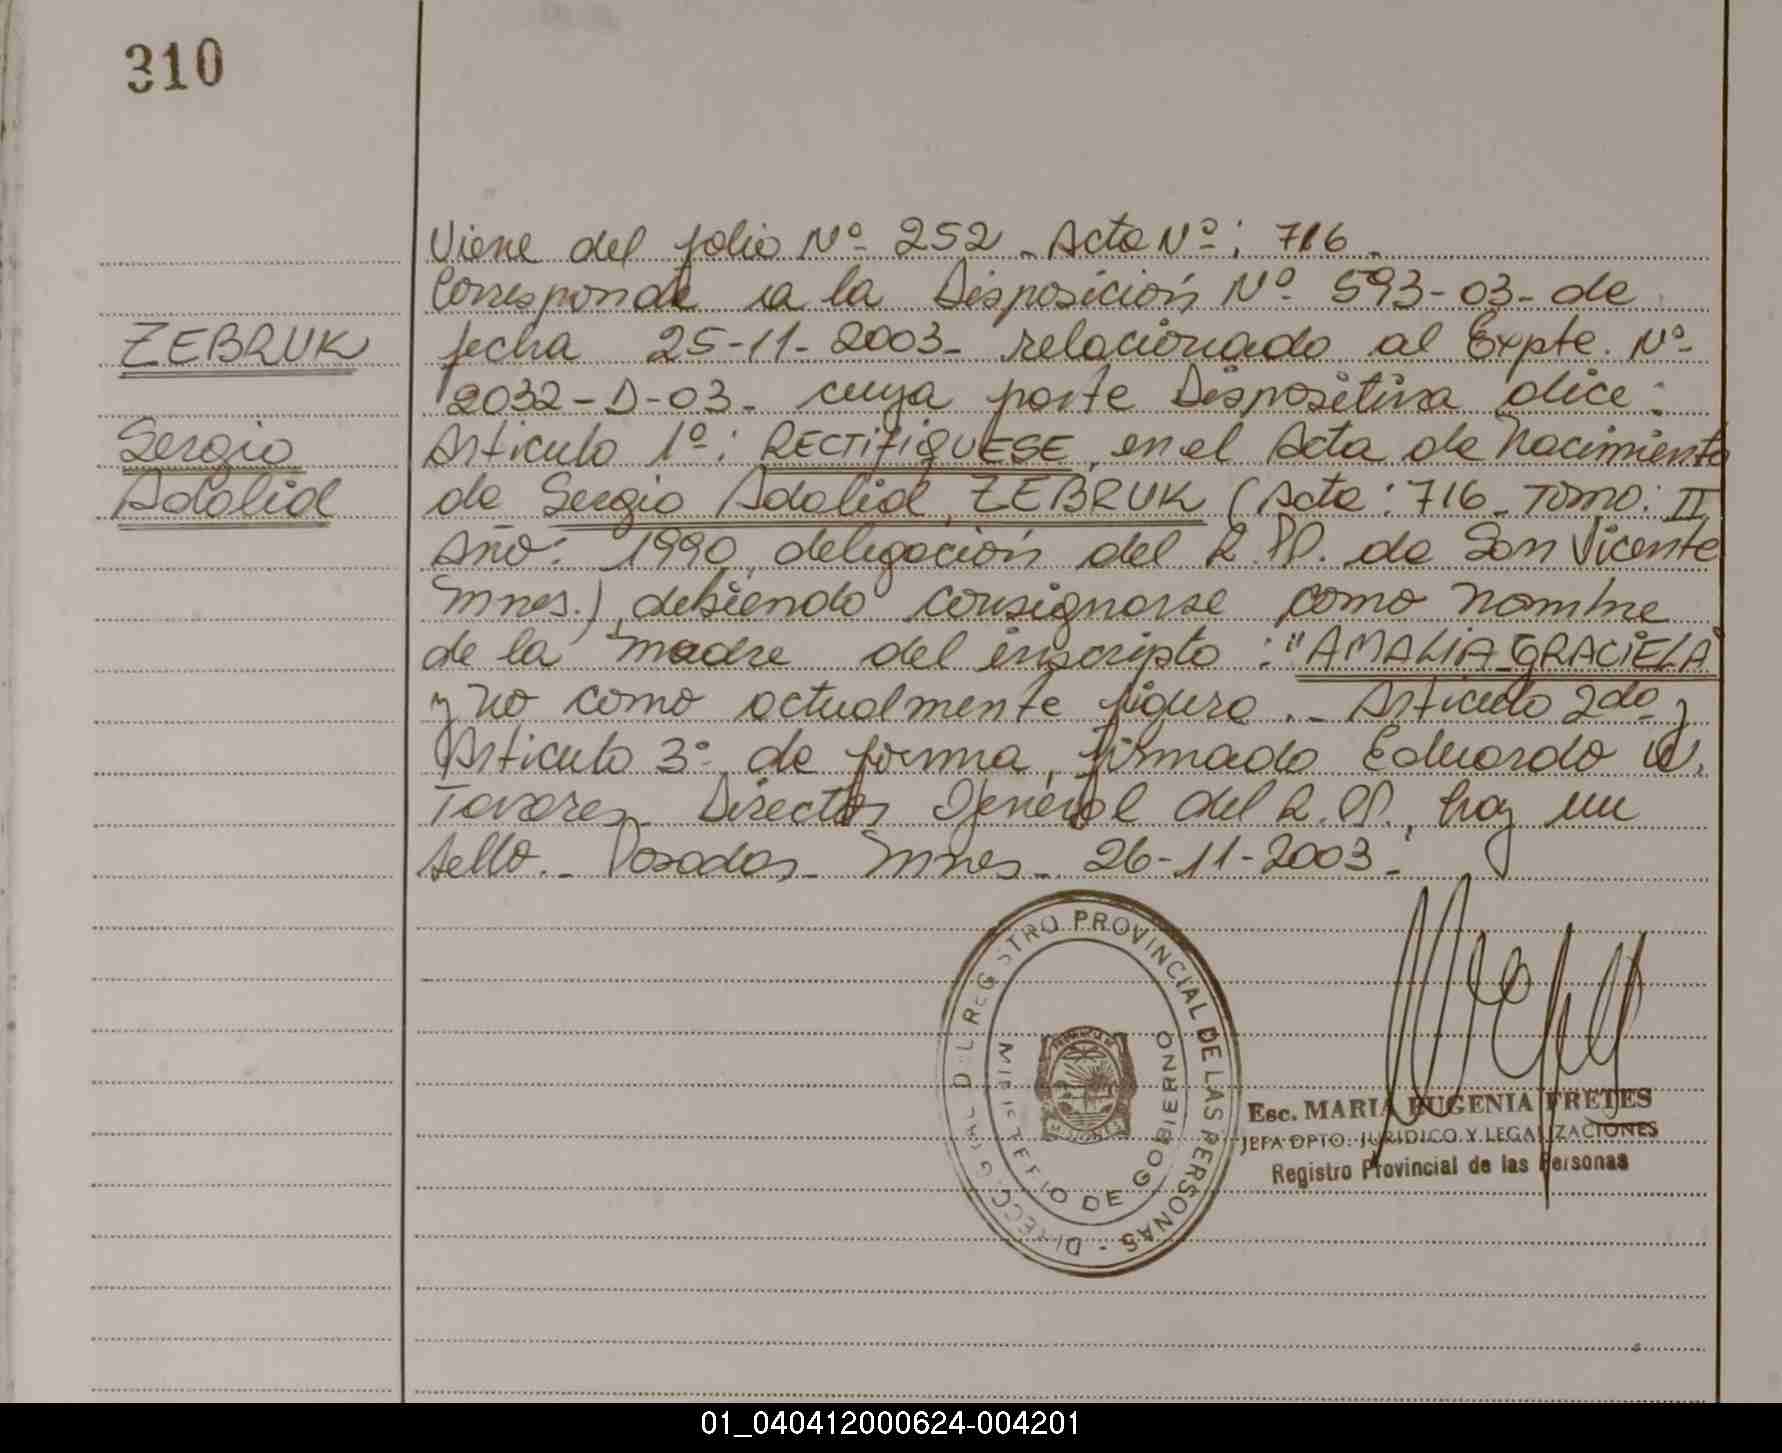 310
Viene del folio Nº 252 - Acta Nº: 716.
Corresponde a la Disposición Nº 593-03- de
ZEBRUK
fecha 25-11-2003- relacionado al Expte. Nº
2032-D-03- cuya parte Dispositiva dice:
Sergio
Articulo 1º: RECTIFIQUESE, en el Acta de Nacimiento
Adalid
de Sergio Adalid, ZEBRUK (Acta: 716- Tomo: II
Año: 1990, delegación del R.P.P. de San Vicente
Mnes.), debiendo consignarse como nombre
de la madre del inscripto: "AMALIA GRACIELA"
y no como actualmente figura.- Articulo 2do y
Articulo 3º de forma, firmado Eduardo
Tavares- Director General del R.P.P., hay un
sello.- Posadas- Mnes- 26-11-2003-
DIRECC. GRAL. DEL REGISTRO PROVINCIAL DE LAS PERSONAS -
MINISTERIO DE GOBIERNO
PROVINCIA DE
MISIONES
Esc. MARIA EUGENIA FRETES
JEFA DPTO. JURIDICO Y LEGALIZACIONES
Registro Provincial de las Personas
01_040412000624-004201